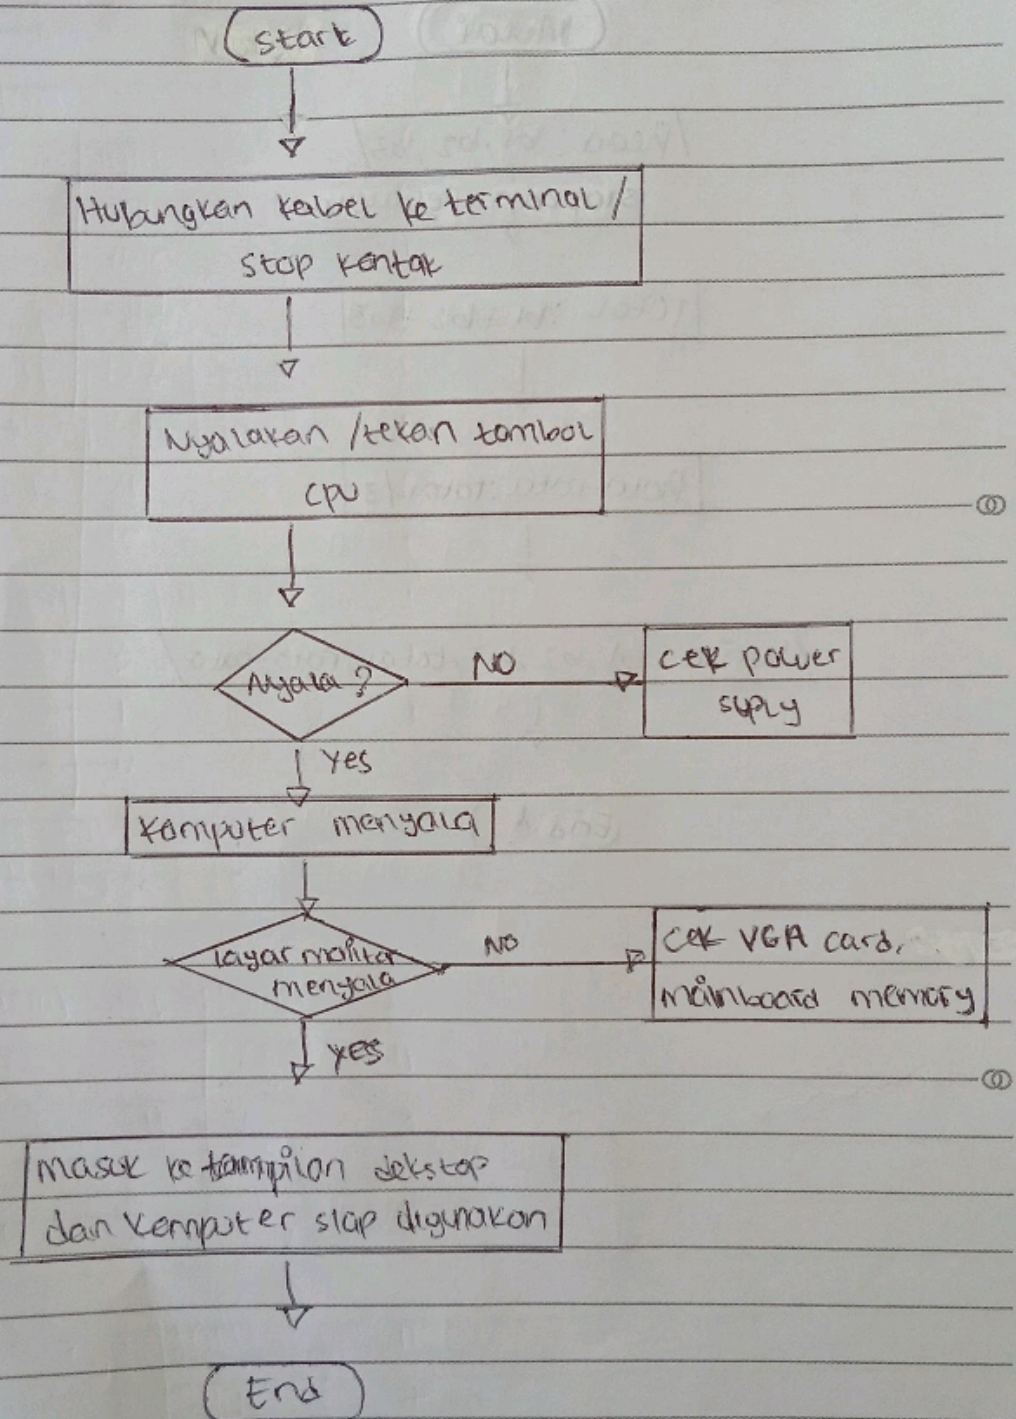 Start
Hubungkan kabel ke terminal /
stop kontak
Nyalakan / tekan tombol
CPU
Nyala ?
NO
cek power
suply
Yes
Komputer menyala
layar monitor
menyala
NO
cek VGA card,
mainboard memory
Yes
masuk ke tampilan dekstop
dan komputer siap digunakan
End